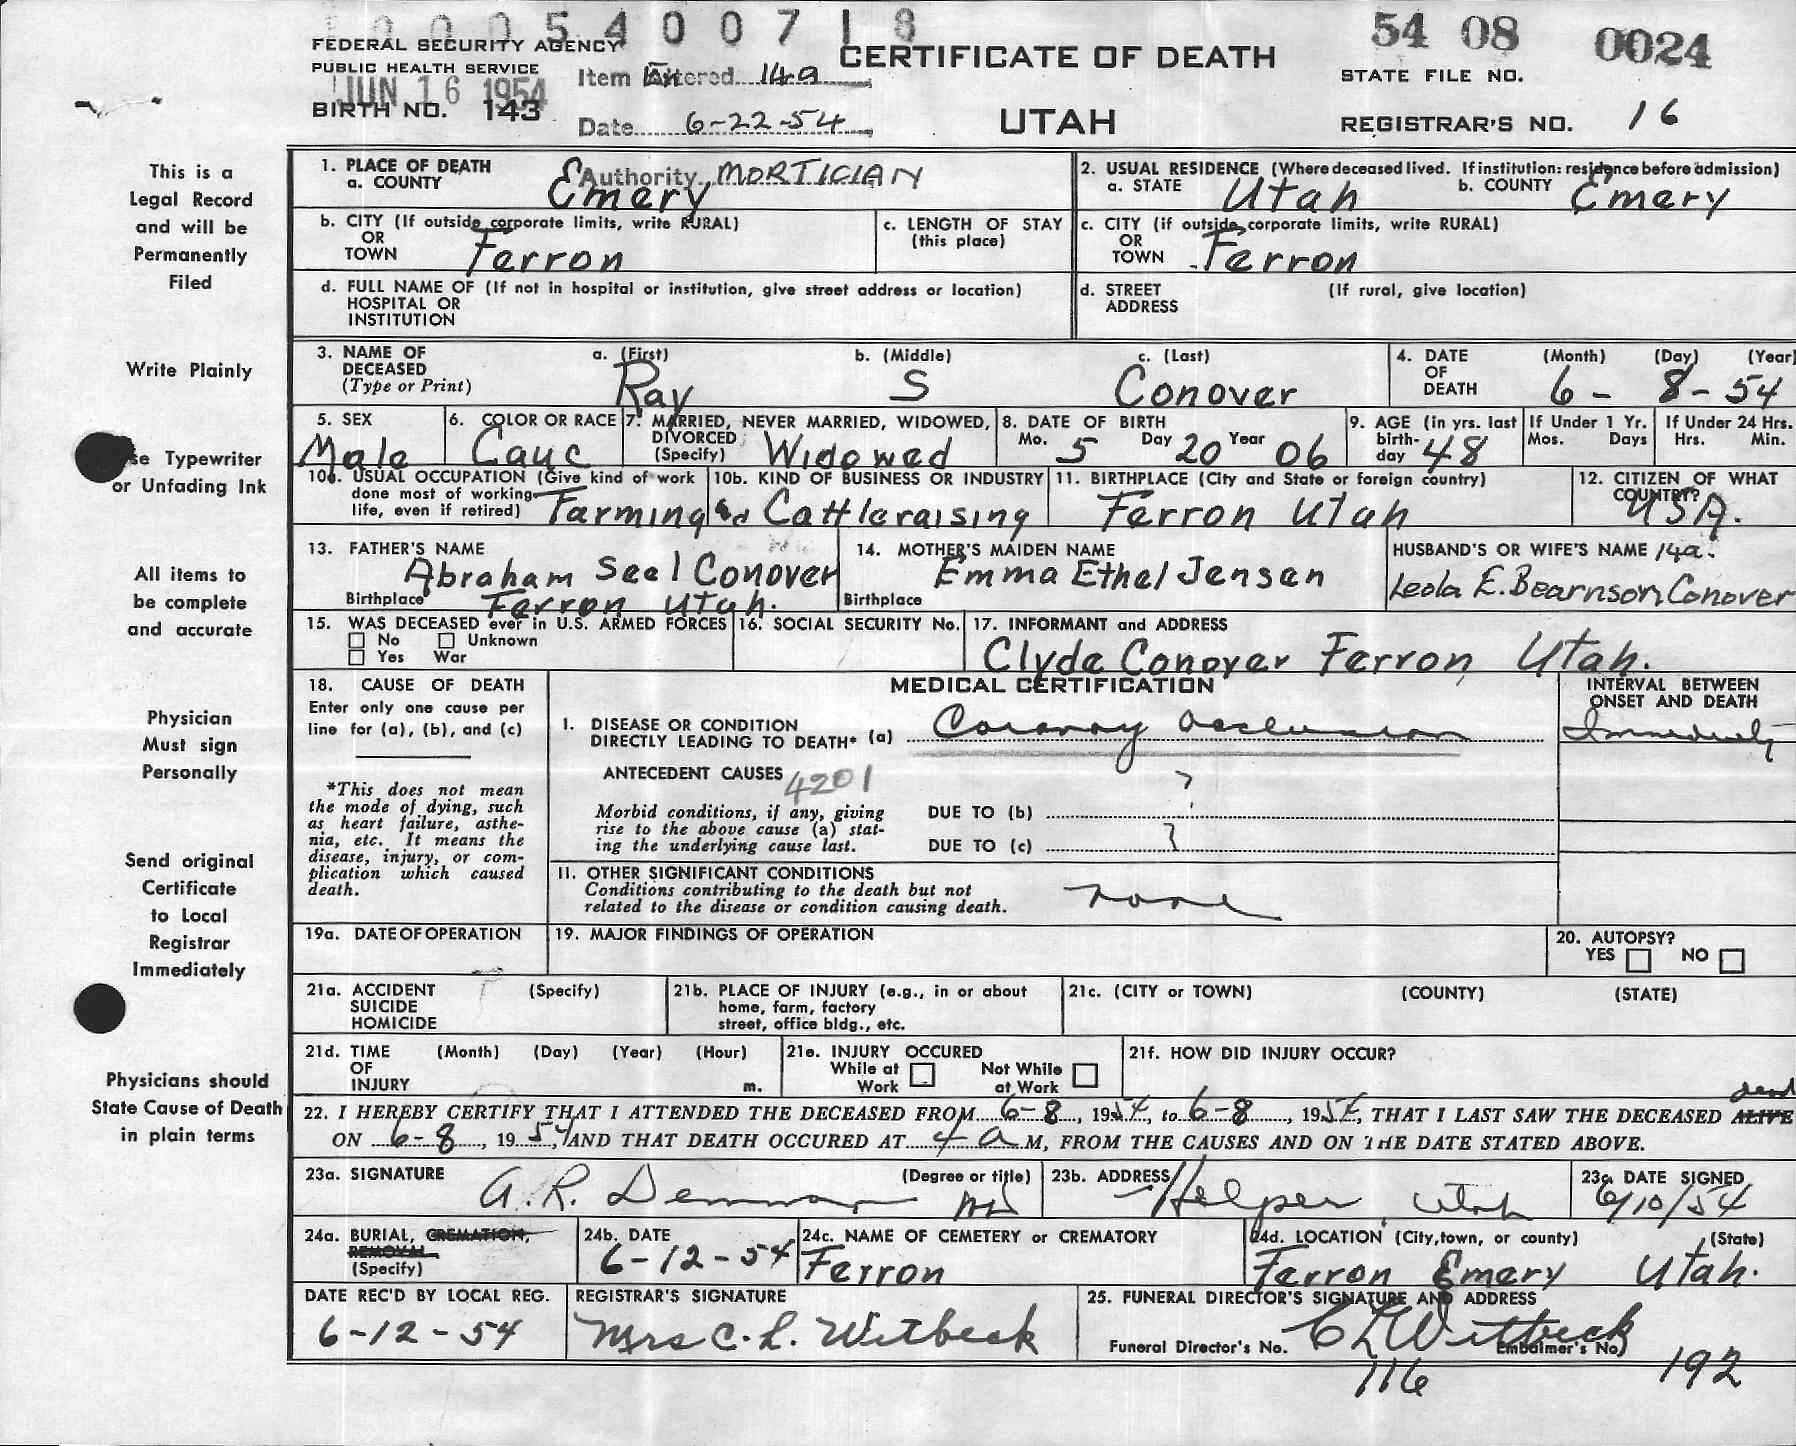 0005400718
FEDERAL SECURITY AGENCY
PUBLIC HEALTH SERVICE
JUN 16 1954
BIRTH NO. 143
Item Entered 14a
Date 6-22-54
Authority MORTICIAN
CERTIFICATE OF DEATH
UTAH
54 08 0024
STATE FILE NO.
REGISTRAR'S NO. 16
This is a
Legal Record
and will be
Permanently
Filed
Write Plainly
se Typewriter
or Unfading Ink
All items to
be complete
and accurate
Physician
Must sign
Personally
Send original
Certificate
to Local
Registrar
Immediately
Physicians should
State Cause of Death
in plain terms
1. PLACE OF DEATH
a. COUNTY Emery
2. USUAL RESIDENCE (Where deceased lived. If institution: residence before admission)
a. STATE Utah b. COUNTY Emery
b. CITY (If outside corporate limits, write RURAL)
OR
TOWN Ferron
c. LENGTH OF STAY
(this place)
c. CITY (if outside corporate limits, write RURAL)
OR
TOWN Ferron
d. FULL NAME OF (If not in hospital or institution, give street address or location)
HOSPITAL OR
INSTITUTION
d. STREET (If rural, give location)
ADDRESS
3. NAME OF
DECEASED
(Type or Print)
a. (First) Ray
b. (Middle) S
c. (Last) Conover
4. DATE
OF
DEATH
(Month) (Day) (Year)
6 - 8 - 54
5. SEX
Male
6. COLOR OR RACE
Cauc
7. MARRIED, NEVER MARRIED, WIDOWED,
DIVORCED
(Specify) Widowed
8. DATE OF BIRTH
Mo. 5 Day 20 Year 06
9. AGE (in yrs. last
birth-
day 48
If Under 1 Yr.
Mos. Days
If Under 24 Hrs.
Hrs. Min.
10a. USUAL OCCUPATION (Give kind of work
done most of working
life, even if retired) Farming &
10b. KIND OF BUSINESS OR INDUSTRY
Cattleraising
11. BIRTHPLACE (City and State or foreign country)
Ferron Utah
12. CITIZEN OF WHAT
COUNTRY?
USA.
13. FATHER'S NAME
Abraham Seel Conover
Birthplace Ferron Utah.
14. MOTHER'S MAIDEN NAME
Emma Ethel Jensen
Birthplace
HUSBAND'S OR WIFE'S NAME 14a.
Leola E. Bearnson Conover
15. WAS DECEASED ever in U.S. ARMED FORCES
No Unknown
Yes War
16. SOCIAL SECURITY No.
17. INFORMANT and ADDRESS
Clyde Conover Ferron Utah.
18. CAUSE OF DEATH
Enter only one cause per
line for (a), (b), and (c)
*This does not mean
the mode of dying, such
as heart failure, asthe-
nia, etc. It means the
disease, injury, or com-
plication which caused
death.
MEDICAL CERTIFICATION
INTERVAL BETWEEN
ONSET AND DEATH
I. DISEASE OR CONDITION
DIRECTLY LEADING TO DEATH* (a) Coronary Occlusion
Immediately
ANTECEDENT CAUSES 4201
Morbid conditions, if any, giving
rise to the above cause (a) stat-
ing the underlying cause last.
DUE TO (b) ?
DUE TO (c) ?
II. OTHER SIGNIFICANT CONDITIONS
Conditions contributing to the death but not
related to the disease or condition causing death.
none
19a. DATE OF OPERATION
19. MAJOR FINDINGS OF OPERATION
20. AUTOPSY?
YES NO
21a. ACCIDENT (Specify)
SUICIDE
HOMICIDE
21b. PLACE OF INJURY (e.g., in or about
home, farm, factory
street, office bldg., etc.
21c. (CITY or TOWN) (COUNTY) (STATE)
21d. TIME (Month) (Day) (Year) (Hour)
OF
INJURY m.
21e. INJURY OCCURED
While at Not While
Work at Work
21f. HOW DID INJURY OCCUR?
dead
22. I HEREBY CERTIFY THAT I ATTENDED THE DECEASED FROM 6-8, 1954, to 6-8, 1954, THAT I LAST SAW THE DECEASED ALIVE
ON 6-8, 1954, AND THAT DEATH OCCURED AT 4 a M, FROM THE CAUSES AND ON THE DATE STATED ABOVE.
23a. SIGNATURE (Degree or title)
A. R. Demman MD
23b. ADDRESS
Helper, Utah
23c. DATE SIGNED
6/10/54
24a. BURIAL, CREMATION,
REMOVAL
(Specify)
24b. DATE
6-12-54
24c. NAME OF CEMETERY OR CREMATORY
Ferron
24d. LOCATION (City, town, or county) (State)
Ferron Emery Utah.
DATE REC'D BY LOCAL REG.
6-12-54
REGISTRAR'S SIGNATURE
Mrs C. L. Witbeck
25. FUNERAL DIRECTOR'S SIGNATURE AND ADDRESS
C L Witbeck
Funeral Director's No. 116
Embalmer's No) 192